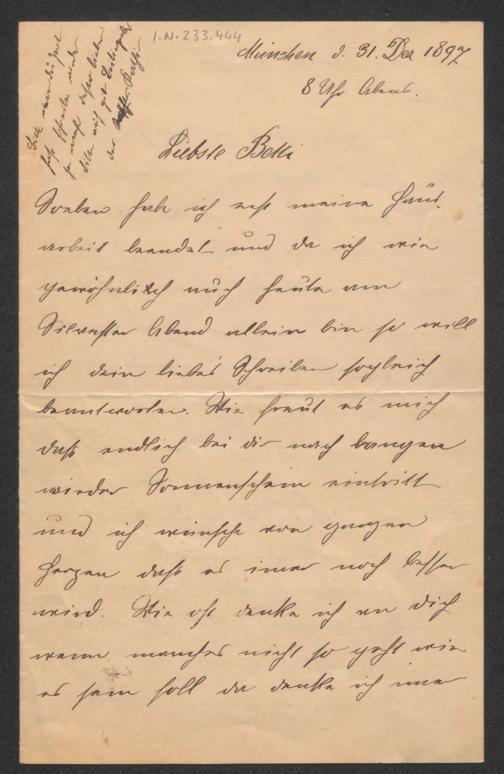 I.N. 233.444
München d. 31. Dez 1897
8 Uhr Abends.
Liebste Betti
Soeben habe ich erst meine Haus-
arbeit beendet und da ich wie
gewöhnlich auch heute am
Silvester Abend allein bin so will
ich dein liebes Schreiben sogleich
beantworten. Wie freut es mich
daß endlich bei dir nach bangen
wieder Sonnenschein eintritt
und ich wünsche von ganzen
Herzen daß es imer noch besser
wird. Wie oft denke ich an Dich
wenn manches nicht so geht wie
es sein soll da denke ich imer